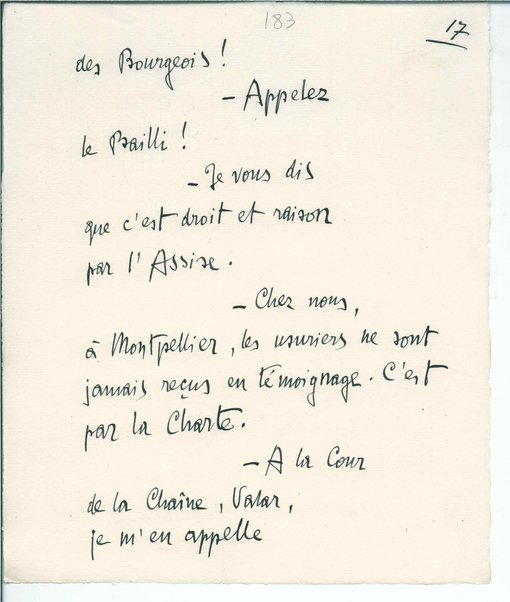 183
17
des Bourgeois !
– Appelez
le Bailli !
– Je vous dis
que c'est droit et raison
par l'Assise.
– Chez nous,
à Montpellier, les usuriers ne sont
jamais reçus en témoignage. C'est
par la Charte.
– A la Cour
de la Chaîne, Vatar,
je m'en appelle